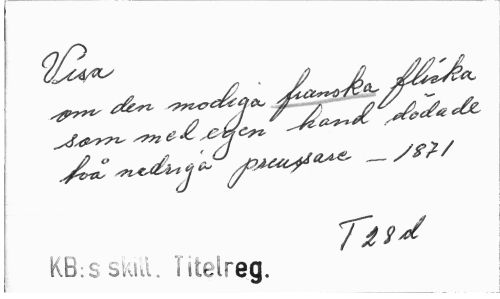 Visa
om den modiga franska flicka
som med egen hand dödade
två nedriga preussare – 1871
T 28 d
KB:s skill. Titelreg.